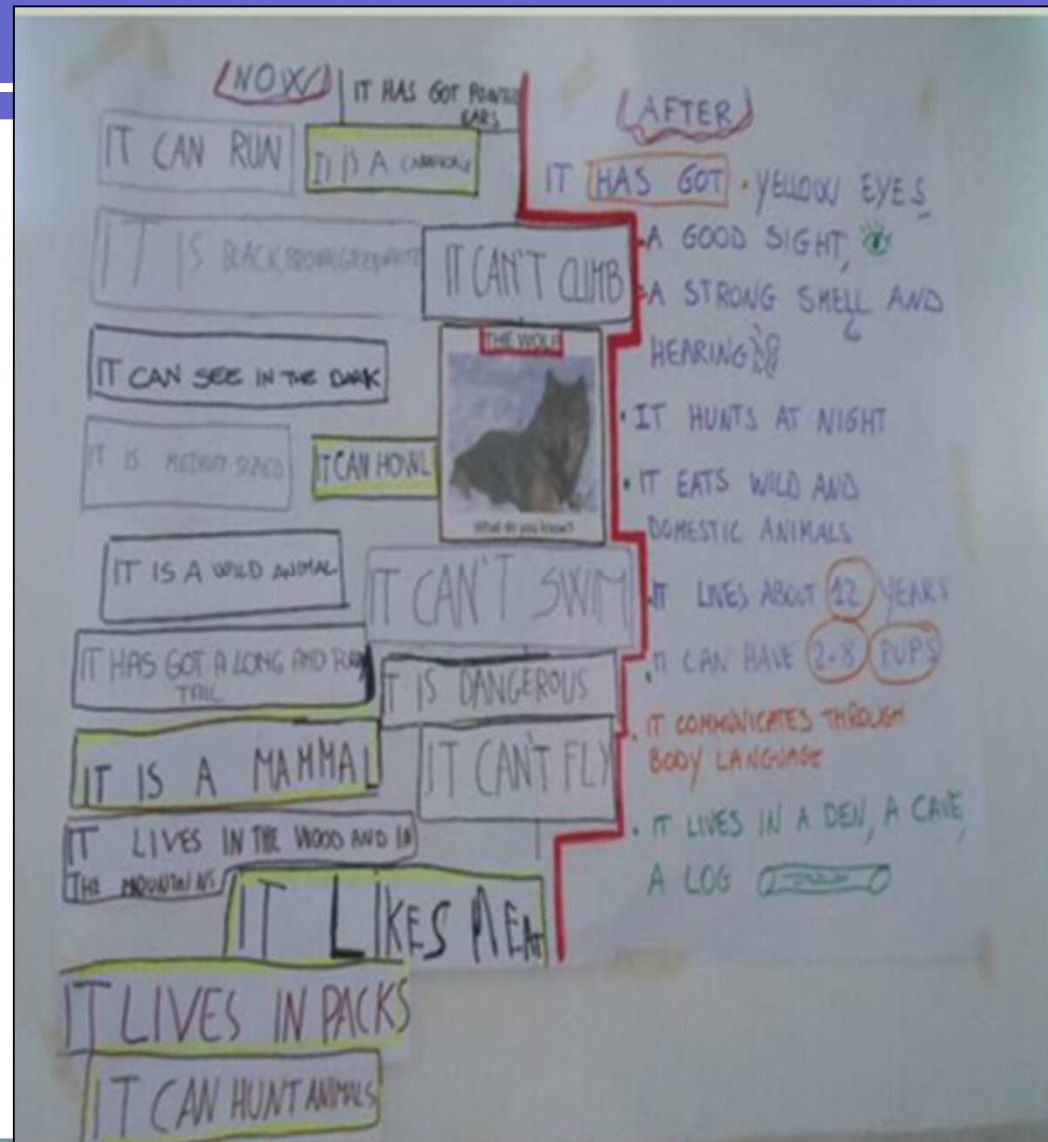 NOW
IT HAS GOT POINTED
EARS
IT CAN RUN
IT IS A CARNIVORE
IT IS BLACK, BROWN, GREY, WHITE
IT CAN'T CLIMB
THE WOLF
IT CAN SEE IN THE DARK
IT IS MEDIUM SIZED
IT CAN HOWL
What do you know?
IT IS A WILD ANIMAL
IT CAN'T SWIM
IT HAS GOT A LONG AND
TAIL
IT IS DANGEROUS
IT IS A MAMMAL
IT CAN'T FLY
IT LIVES IN THE WOOD AND IN
THE MOUNTAINS
IT LIKES MEAT
IT LIVES IN PACKS
IT CAN HUNT ANIMALS
AFTER
IT HAS GOT • YELLOW EYES,
• A GOOD SIGHT,
• A STRONG SMELL AND
HEARING
• IT HUNTS AT NIGHT
• IT EATS WILD AND
DOMESTIC ANIMALS
• IT LIVES ABOUT 12 YEARS
• IT CAN HAVE 2-8 PUPS
• IT COMMUNICATES THROUGH
BODY LANGUAGE
• IT LIVES IN A DEN, A CAVE,
A LOG